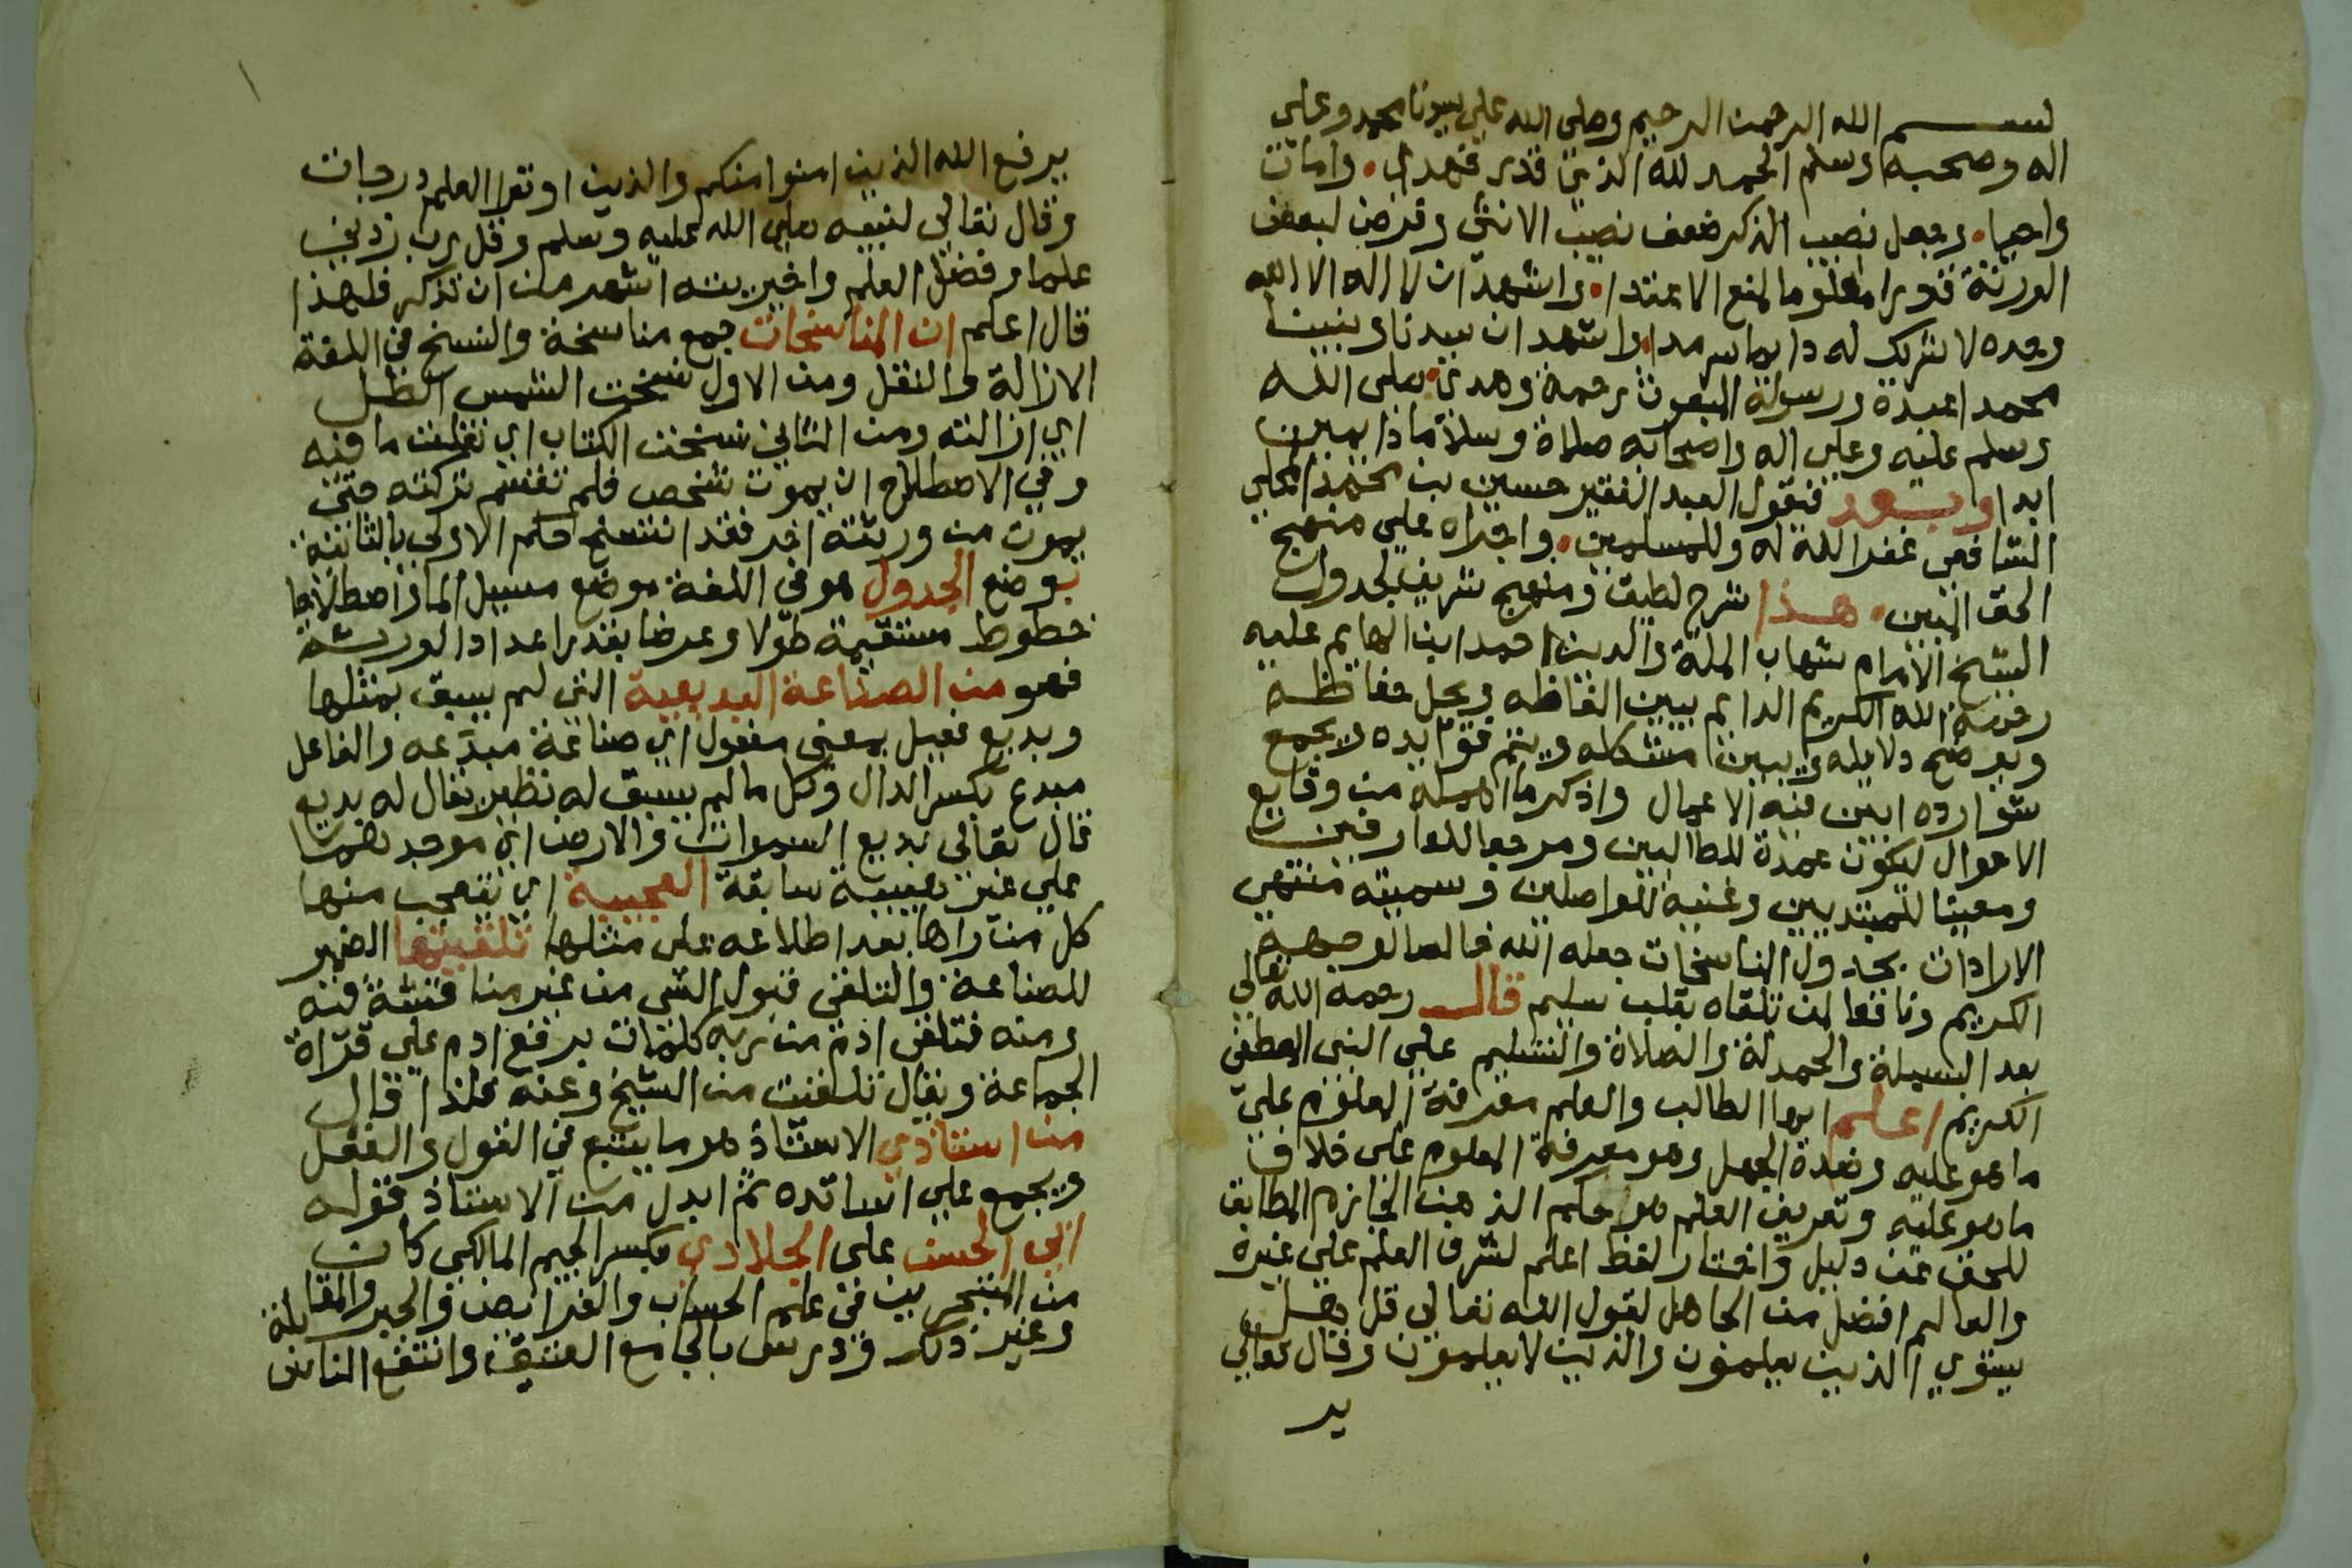 بسم الله الرحمن الرحيم وصلى الله على سيدنا محمد وعلى
اله وصحبه وسلم الحمد لله الذي قدر فهدى. وامات
واحيا. وجعل نصيب الذكر ضعف نصيب الانثى وفرض لبعض
الورثة قدرا معلوما لمنع الاعتدا. واشهد ان لا اله الا الله
وحده لا شريك له دايما سرمدا. واشهد ان سيدنا ونبينا
محمدا عبده ورسوله المبعوث رحمة وهدى. صلى الله
وسلم عليه وعلى اله واصحابه صلاة وسلاما دايمين
ابدا وبعد فيقول العبد الفقير حسين بن محمد المحلي
الشافعي غفر الله له وللمسلمين. واجراه على منهج
الحق المبين. هذا شرح لطيف ومنهج شريف لجدول
الشيخ الامام شهاب الملة والدين احمد ابن الهايم عليه
رحمة الله الكريم الدايم يبين الفاظه ويحل
ويوضح دلايله ويبين مشكله ويتم فوايده ويجمع
شوارده ابين فيه الاعمال واذكر ما اهمله من وقايع
الاحوال ليكون عمدة للطالبين ومرجعا للعارفين
ومعينا للمبتديين وغنية للواصلين وسميته منتهى
الارادات بجدول المناسخات جعله الله خالصا لوجهه
الكريم ونافعا لمن تلقاه بقلب سليم قال رحمه الله تعالي
بعد البسملة والحمدلة والصلاة والتسليم علي النبي المصطفى
الكريم اعلم ايها الطالب والعلم معرفة المعلوم على
ما هو عليه وضده الجهل وهو معرفة المعلوم على خلاف
ما هو عليه وتعريف العلم هو حكم الذهن الجازم المطابق
للحق عن دليل واختار لفظ اعلم لشرف العلم علي غيره
والعالم افضل من الجاهل لقول الله تعالي قل هل
يستوي الذين يعلمون والذين لا يعلمون وقال تعالي
ير
يرفع الله الذين امنوا منكم والذين اوتوا العلم درجات
وقال تعالي لنبيه صلي الله عليه وسلم وقل رب زدني
علما وفضل العلم واخيريته اشهر من ان تذكر فلهذا
قال اعلم ان المناسخات جمع مناسخة والنسخ في اللغة
الازالة والنقل ومن الاول نسخت الشمس الظل
اي ازالته ومن الثاني نسخت الكتاب اي نقلت ما فيه
وفي الاصطلاح ان يموت شخص فلم تقسم تركته حتى
يموت من ورثته اخر فقد انتسخ حكم الاولي بالثانية
بوضع الجدول هو في اللغة موضع مسيل الما واصطلاحا
خطوط مستقيمة طولا وعرضا بقدر اعداد الورثة
فهو من الصناعة البديعية التي لم يسبق بمثلها
وبديع فعيل بمعنى مفعول اي صناعة مبدعه والفاعل
مبدع بكسر الدال وكل ما لم يسبق له نظير يقال له بديع
قال تعالي بديع السموات والارض اي موجدهما
علي غير سابقة العجيبة اي يتعجب منها
كل من راها بعد اطلاعه على مثلها تلقيتها الضمير
للصناعة والتلقي قبول الشي من غير مناقشة فيه
ومنه فتلقى ادم من ربه كلمات برفع ادم علي قراة
الجماعة ويقال تلقيت من الشيخ وعنه فلذا قال
من استاذي الاستاذ هو ما يتبع في القول والفعل
ويجمع علي اساتده ثم ابدل من الاستاذ قوله
ابي الحسن على الجلادي بكسر الجيم المالكي كان
من المتبحرين في علم الحساب والفرايض والجبر والمقابلة
وغير ذلك ودرس بالجامع العتيق وانتفع الناس